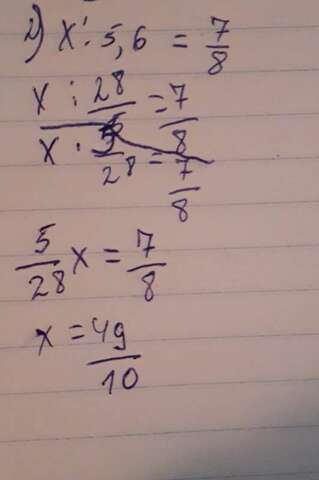 2) x : 5,6 = 7/8
x : 28/5 = 7/8
x · 5/28 = 7/8
5/28 x = 7/8
x = 49/10